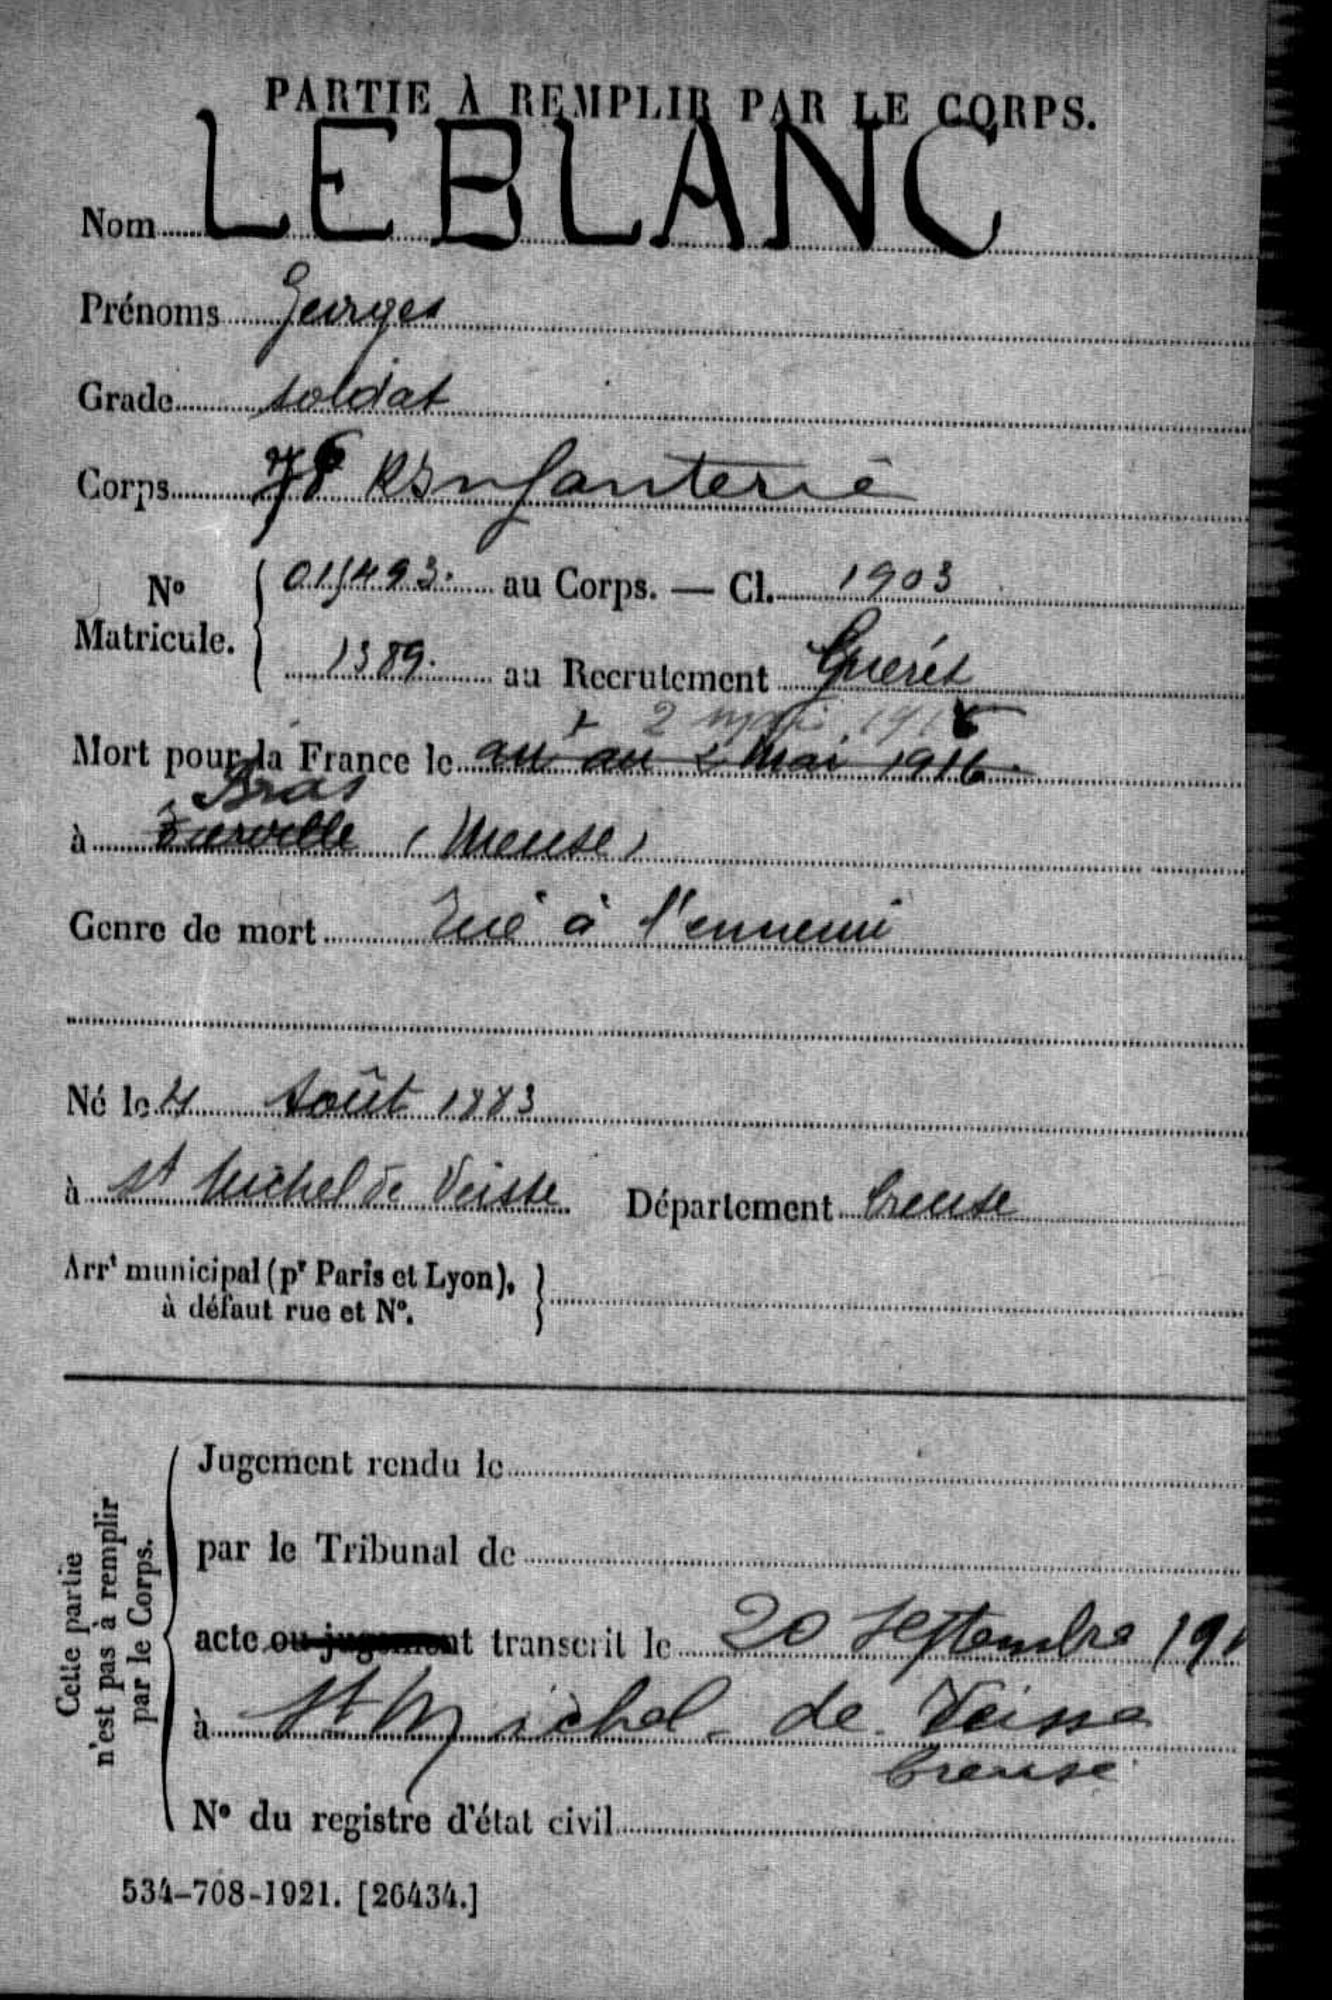 PARTIE À REMPLIR PAR LE CORPS.
Nom LEBLANC
Prénoms Georges
Grade soldat
Corps 78 R Infanterie
No Matricule. 01493. au Corps. — Cl. 1903
1389. au Recrutement Guéret
2 mai 1916
Mort pour la France le au au 2 Mai 1916
Bras
à (Meuse)
Genre de mort Tué à l'ennemi
Né le 4 Août 1883
à St Michel de Veisse. Département Creuse
Arrt municipal (pr Paris et Lyon),
à défaut rue et No.
Cette partie n'est pas à remplir par le Corps.
Jugement rendu le
par le Tribunal de
acte ou jugement transcrit le 20 Septembre 191
à St Michel de Veisse
Creuse
No du registre d'état civil
534-708-1921. [26434.]